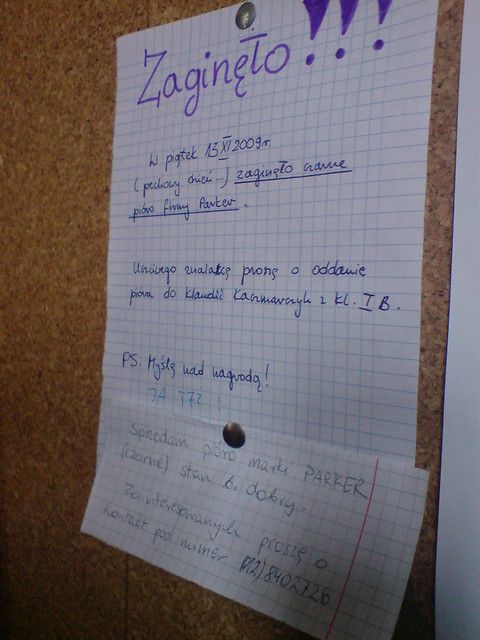 Zaginęło!!!
W piątek 13 XI 2009r.
(pechowy dzień...) zaginęło czarne
pióro firmy Parker.
Uczciwego znalazcę proszę o oddanie
pióra do Klaudii Kaczmarczyk z kl. I B.
PS. Myślę nad nagrodą!
JA TEŻ !
Sprzedam pióro marki PARKER
(czarne) stan b. dobry.
Zainteresowanych proszę o
kontakt pod numer (12)8402726